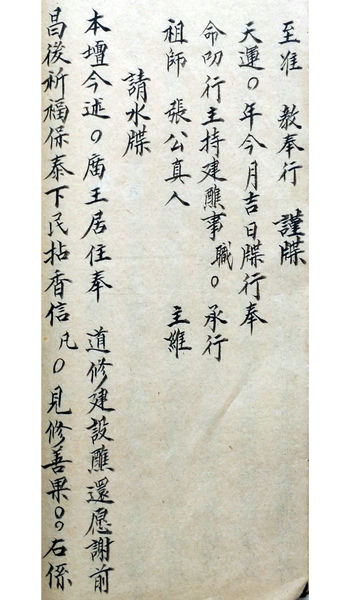 至准 教奉行 謹牒
天運〇年今月吉日牒行奉
命叨行主持建醮事職〇承行
祖師 張公真人 主維
請水牒
本壇今述〇廣王居住奉 道修建設醮還愿謝前
昌後祈福保泰下民拈香信凡〇見修善果〇〇右係